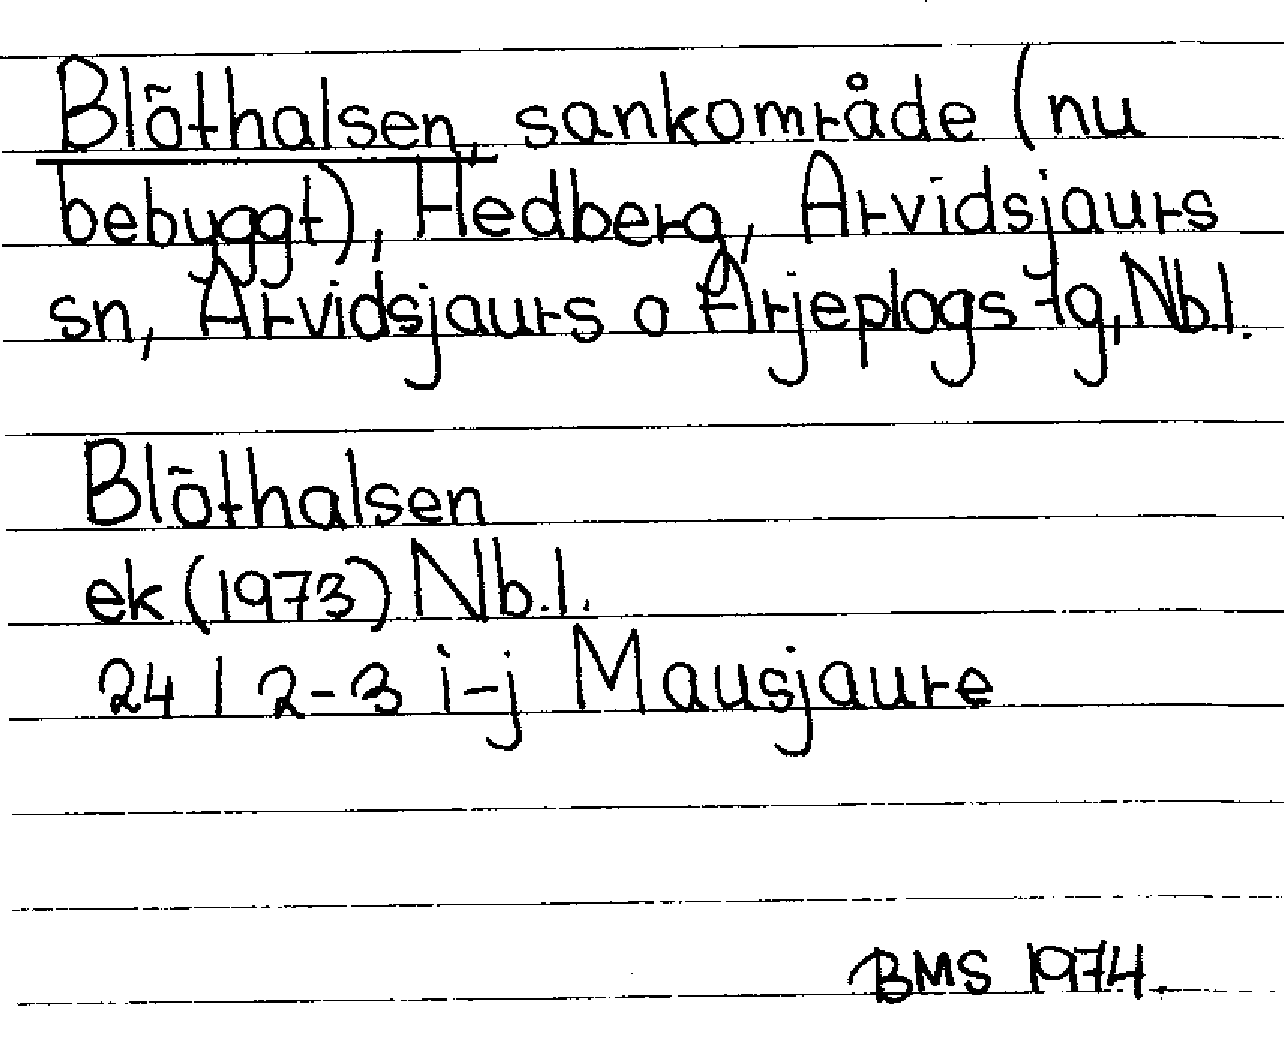 Blöthalsen, sankområde (nu
bebyggt), Hedberg, Arvidsjaurs
sn, Arvidsjaurs o Arjeplogs tg, Nb.l.
Blöthalsen
ek (1973) Nb.l.
24 I 2-3 i-j Mausjaure
BMS 1974.